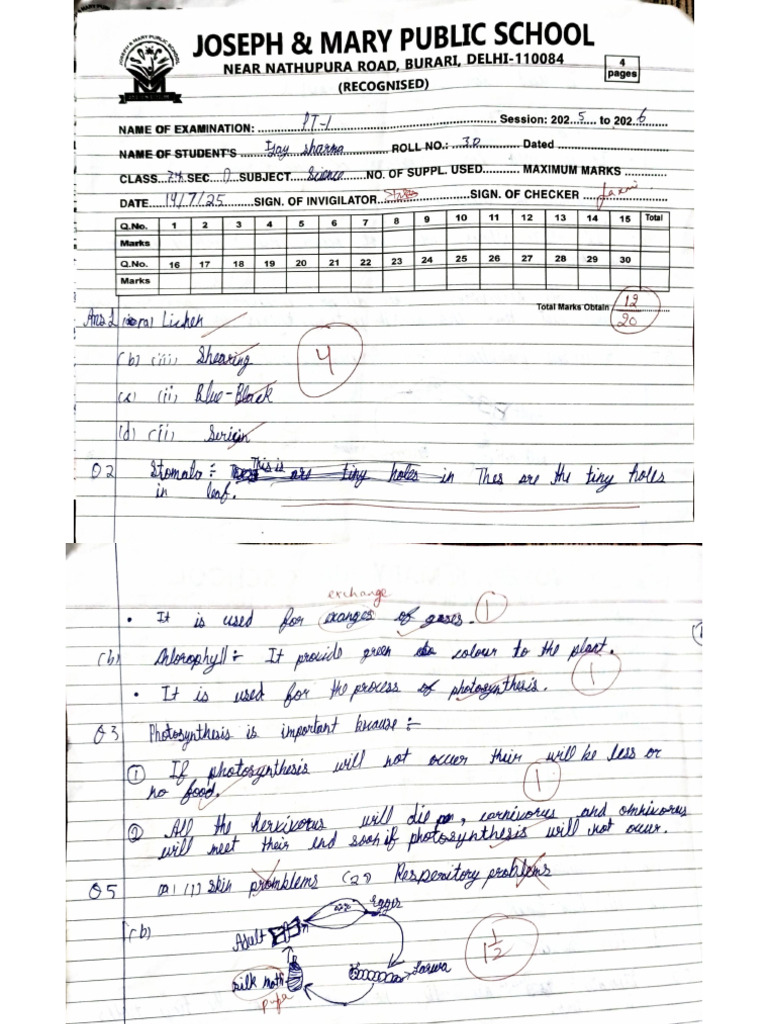 JOSEPH & MARY PUBLIC SCHOOL
NEAR NATHUPURA ROAD, BURARI, DELHI-110084
(RECOGNISED)
4 pages
NAME OF EXAMINATION: PT-1 Session: 2025 to 2026
NAME OF STUDENT'S Sharma ROLL NO.: 30 Dated
CLASS 7th SEC. D SUBJECT Science NO. OF SUPPL. USED MAXIMUM MARKS
DATE 14/7/25 SIGN. OF INVIGILATOR SIGN. OF CHECKER
Q.No. 1 2 3 4 5 6 7 8 9 10 11 12 13 14 15 Total
Marks
Q.No. 16 17 18 19 20 21 22 23 24 25 26 27 28 29 30
Marks
Total Marks Obtain 12/20
Ans 1 (a) Lichen
(b) (iii) Shearing 4
(c) (ii) Blue-Black
(d) (ii) Sericin
Q2 Stomata :- This is are tiny holes in Thes are the tiny holes
in leaf.
exchange
• It is used for exanges of gases. 1
(b) Chlorophyll :- It provide green colour to the plant.
• It is used for the process of photosynthesis. 1
Q3 Photosynthesis is important because :-
① If photosynthesis will not occur their will be less or
no food. 1
② All the hervivorus will die, carnivorus and omnivorus
will meet their end soon if photosynthesis will not occur.
Q5 (a) (1) skin promblems (2) Respenitory problems
(b) Eggs
Adult 1 1/2
Larwa
silk moth
pupa